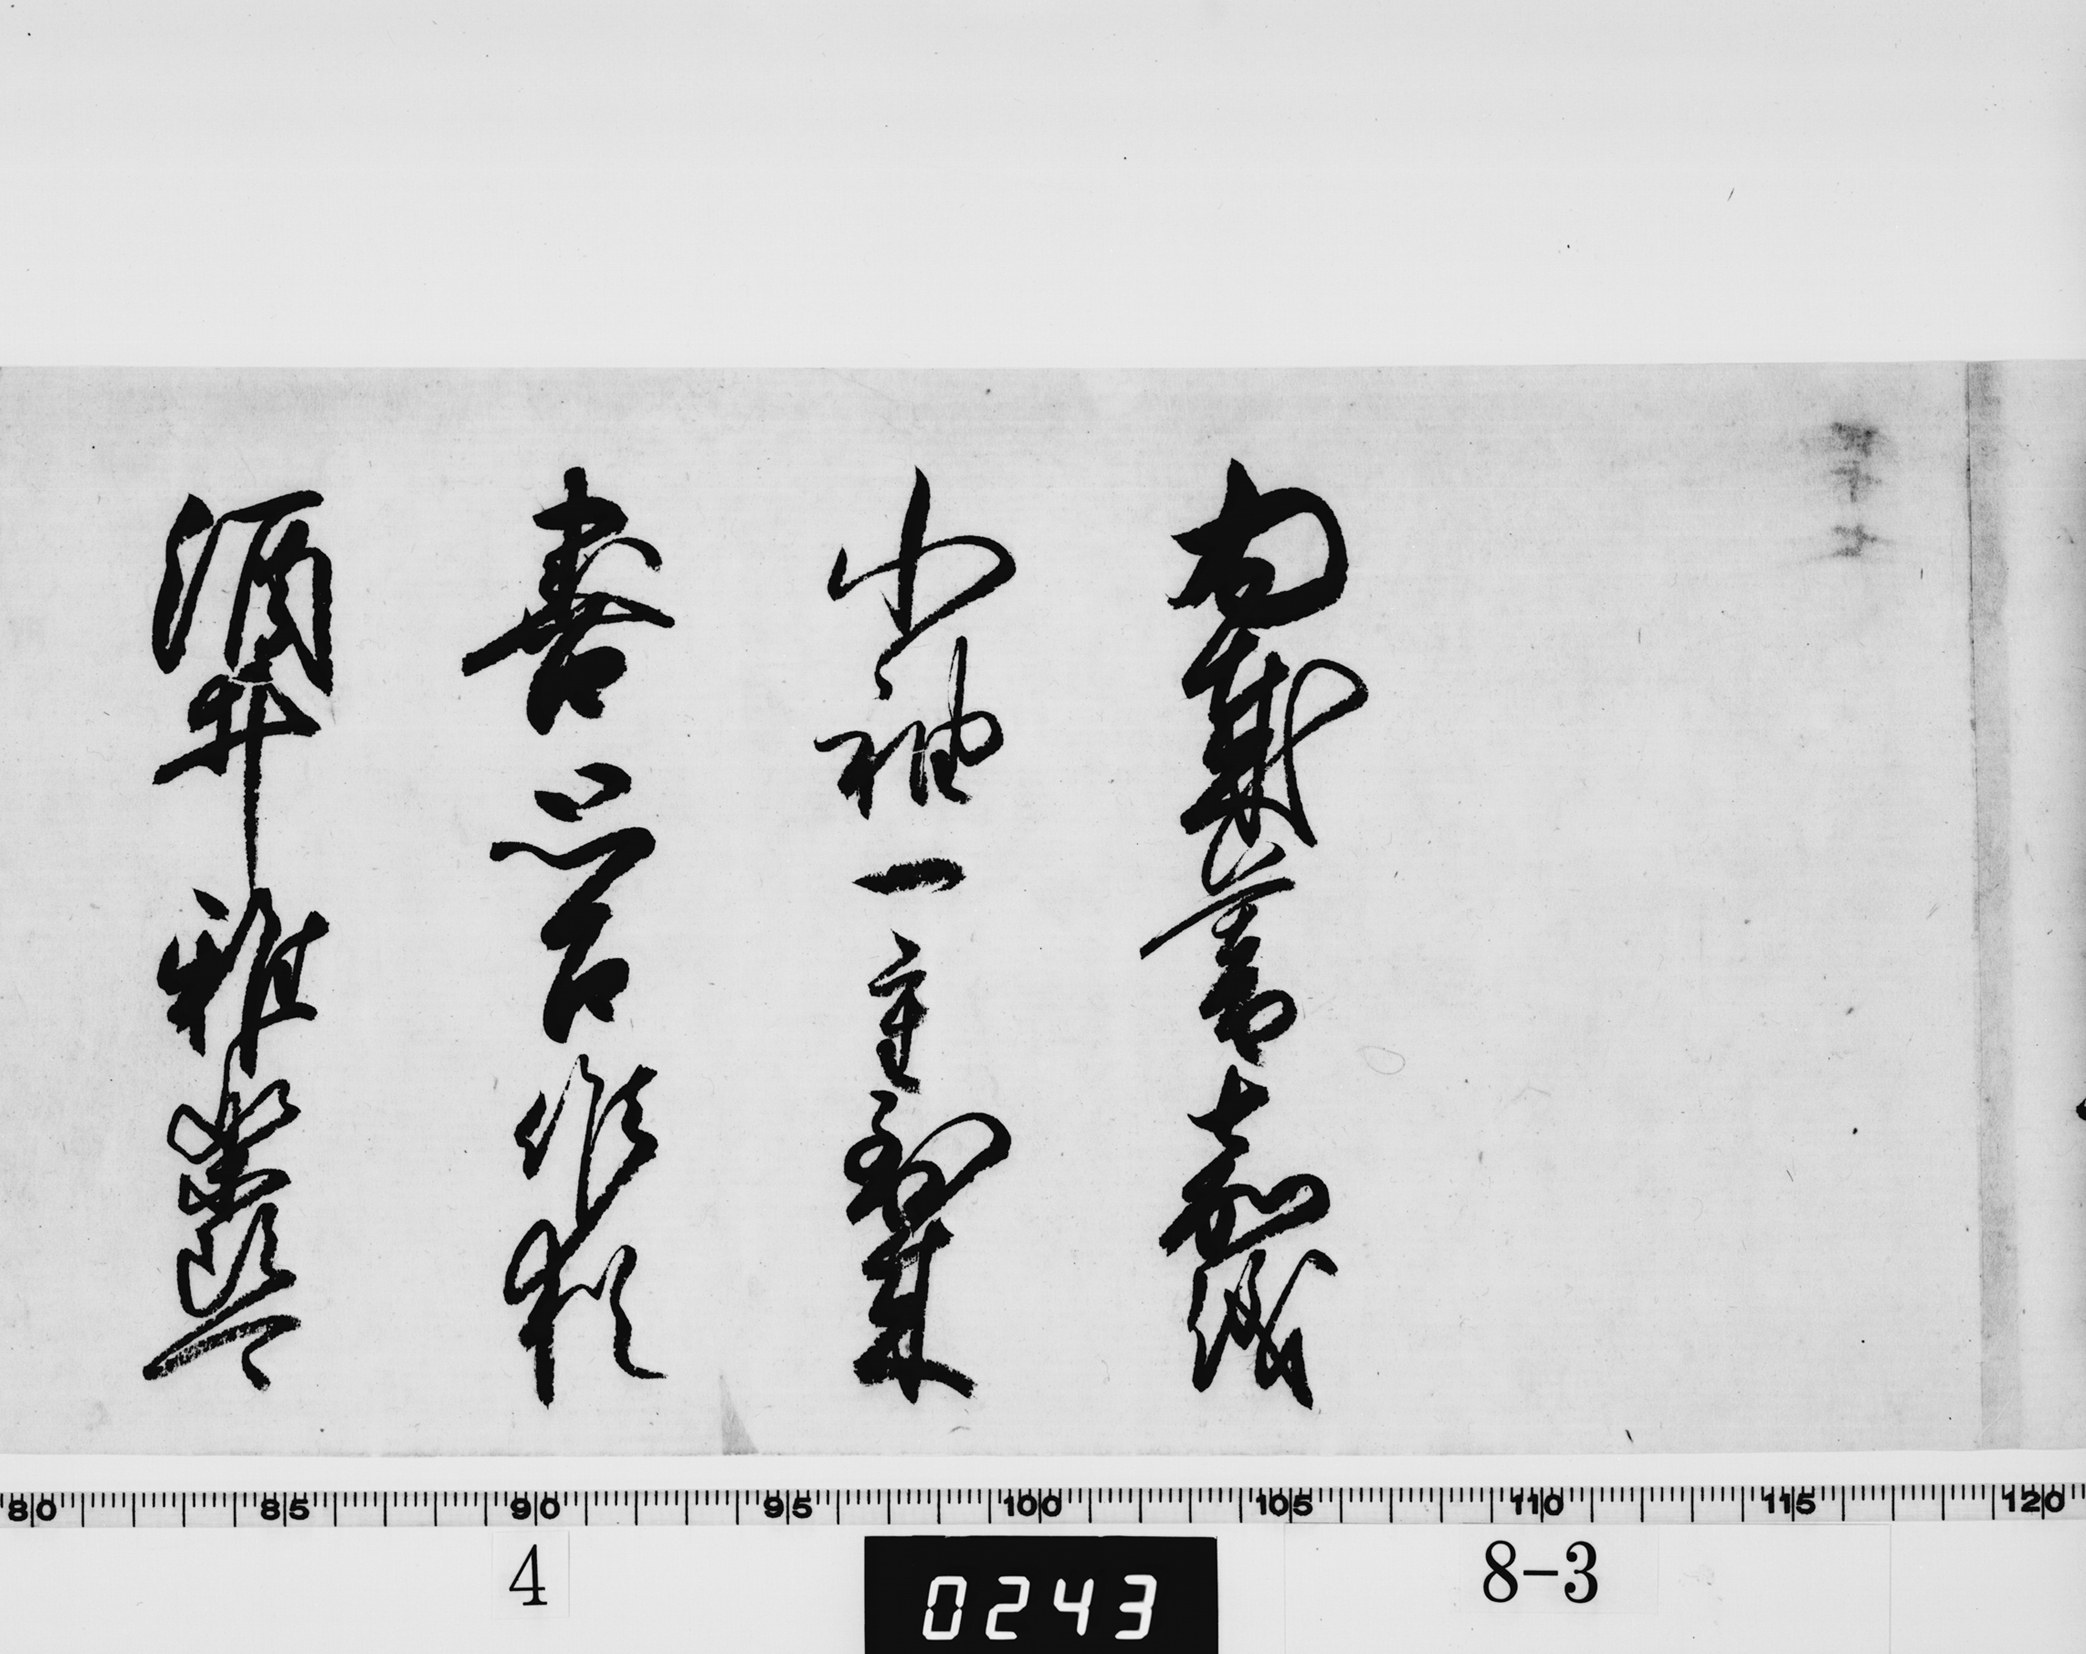 為歳暮嘉儀
小袖一重到来
喜 思召候猶
酒井雅楽頭可
80 85 90 95 100 105 110 115 120
4
0243
8-3